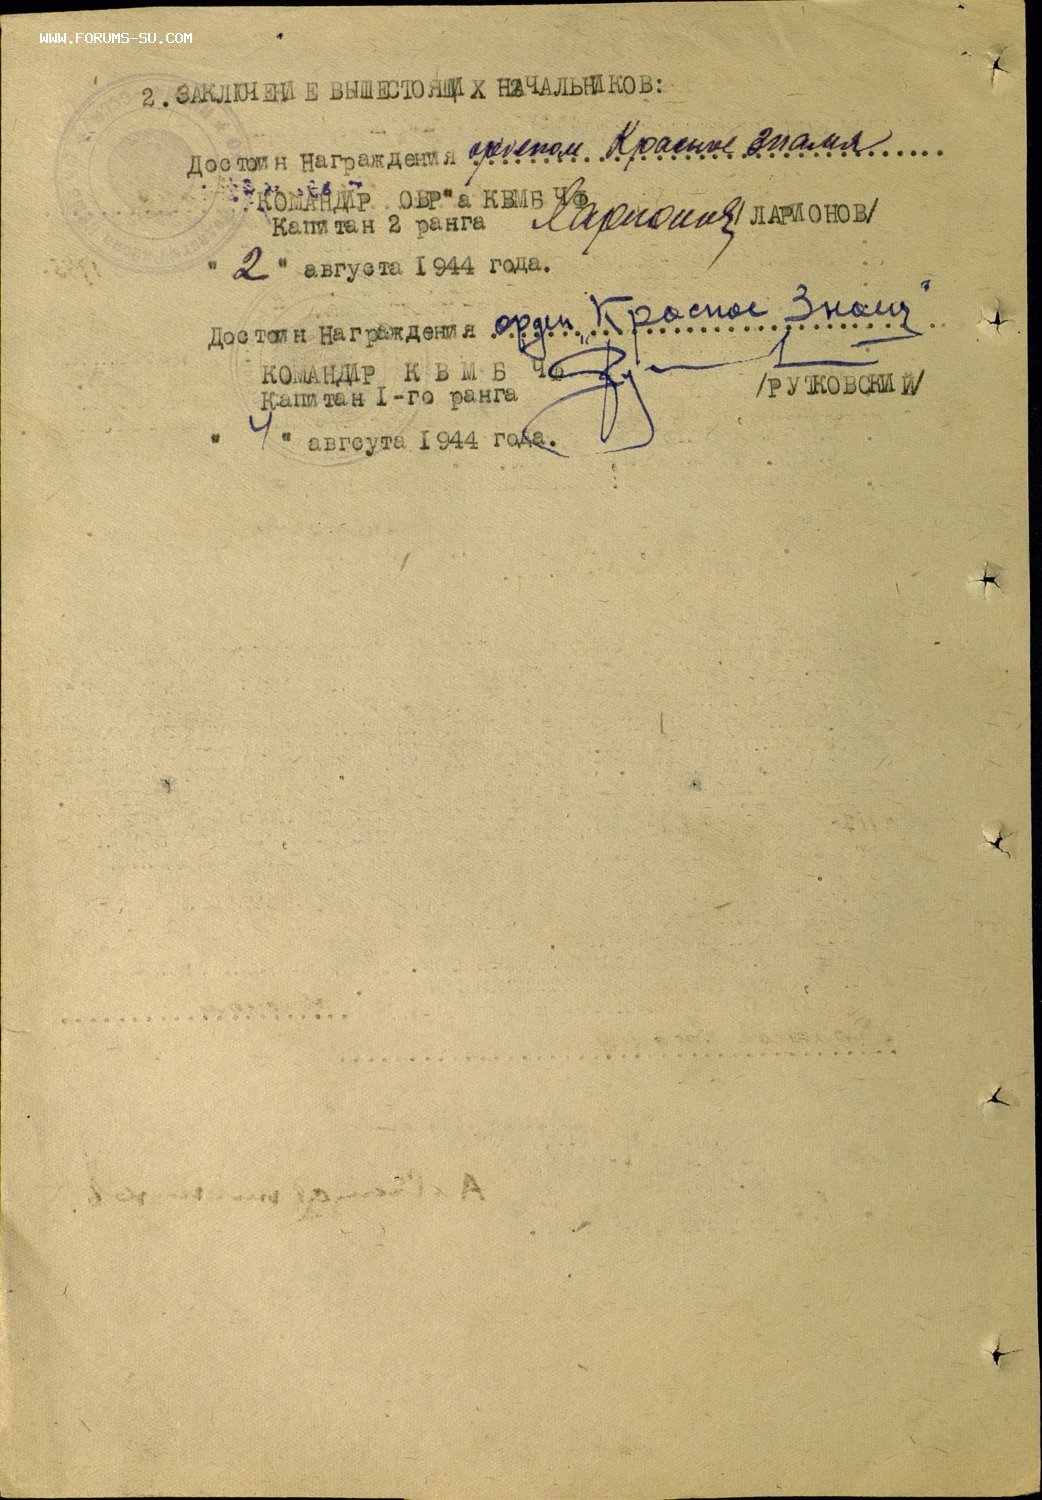 WWW.FORUMS-SU.COM
2. ЗАКЛЮЧЕНИЕ ВЫШЕСТОЯЩИХ НАЧАЛЬНИКОВ:
Достоин Награждения орденом Красное Знамя
КОМАНДИР ОВР"а КВМБ ЧФ
Капитан 2 ранга Ларионов /ЛАРИОНОВ/
" 2 " августа I944 года.
Достоин Награждения орден "Красное Знамя"
КОМАНДИР К В М Б ЧФ
Капитан I-го ранга /РУТКОВСКИЙ/
" 4 " авгсута I944 года.